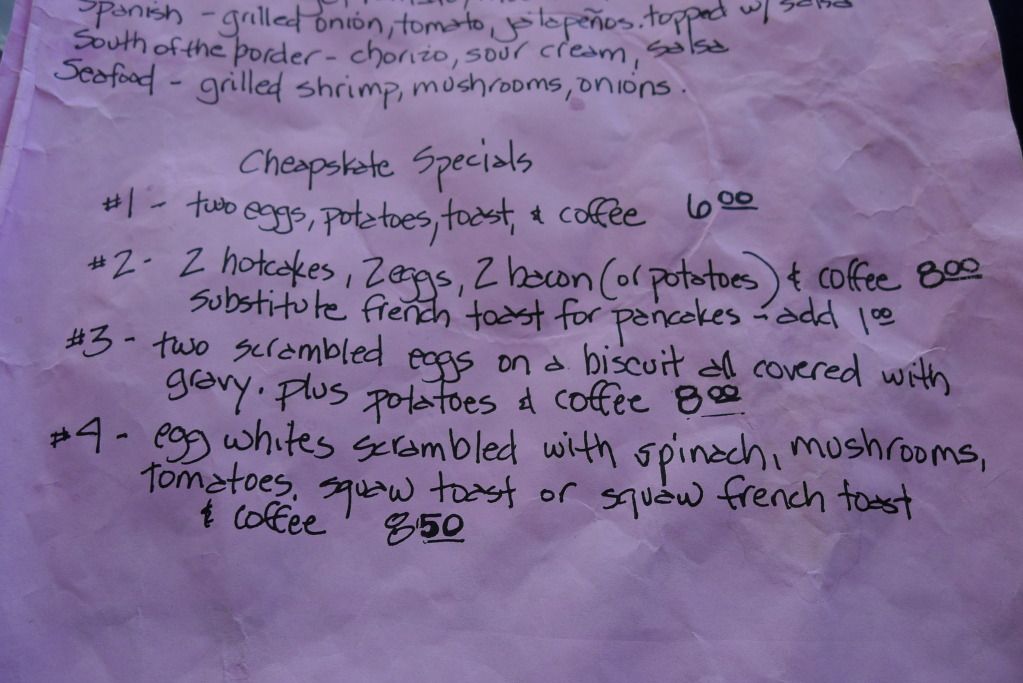 Spanish - grilled onion, tomato, jalapeños. topped w/ salsa
South of the border - chorizo, sour cream, salsa
Seafood - grilled shrimp, mushrooms, onions.
Cheapskate Specials
#1 - two eggs, potatoes, toast, & coffee 6 00
#2 - 2 hotcakes, 2 eggs, 2 bacon (or potatoes) & coffee 8 00
substitute french toast for pancakes - add 1 00
#3 - two scrambled eggs on a biscuit all covered with
gravy. plus potatoes & coffee 8 00
#4 - egg whites scrambled with spinach, mushrooms,
tomatoes, squaw toast or squaw french toast
& coffee 8 50